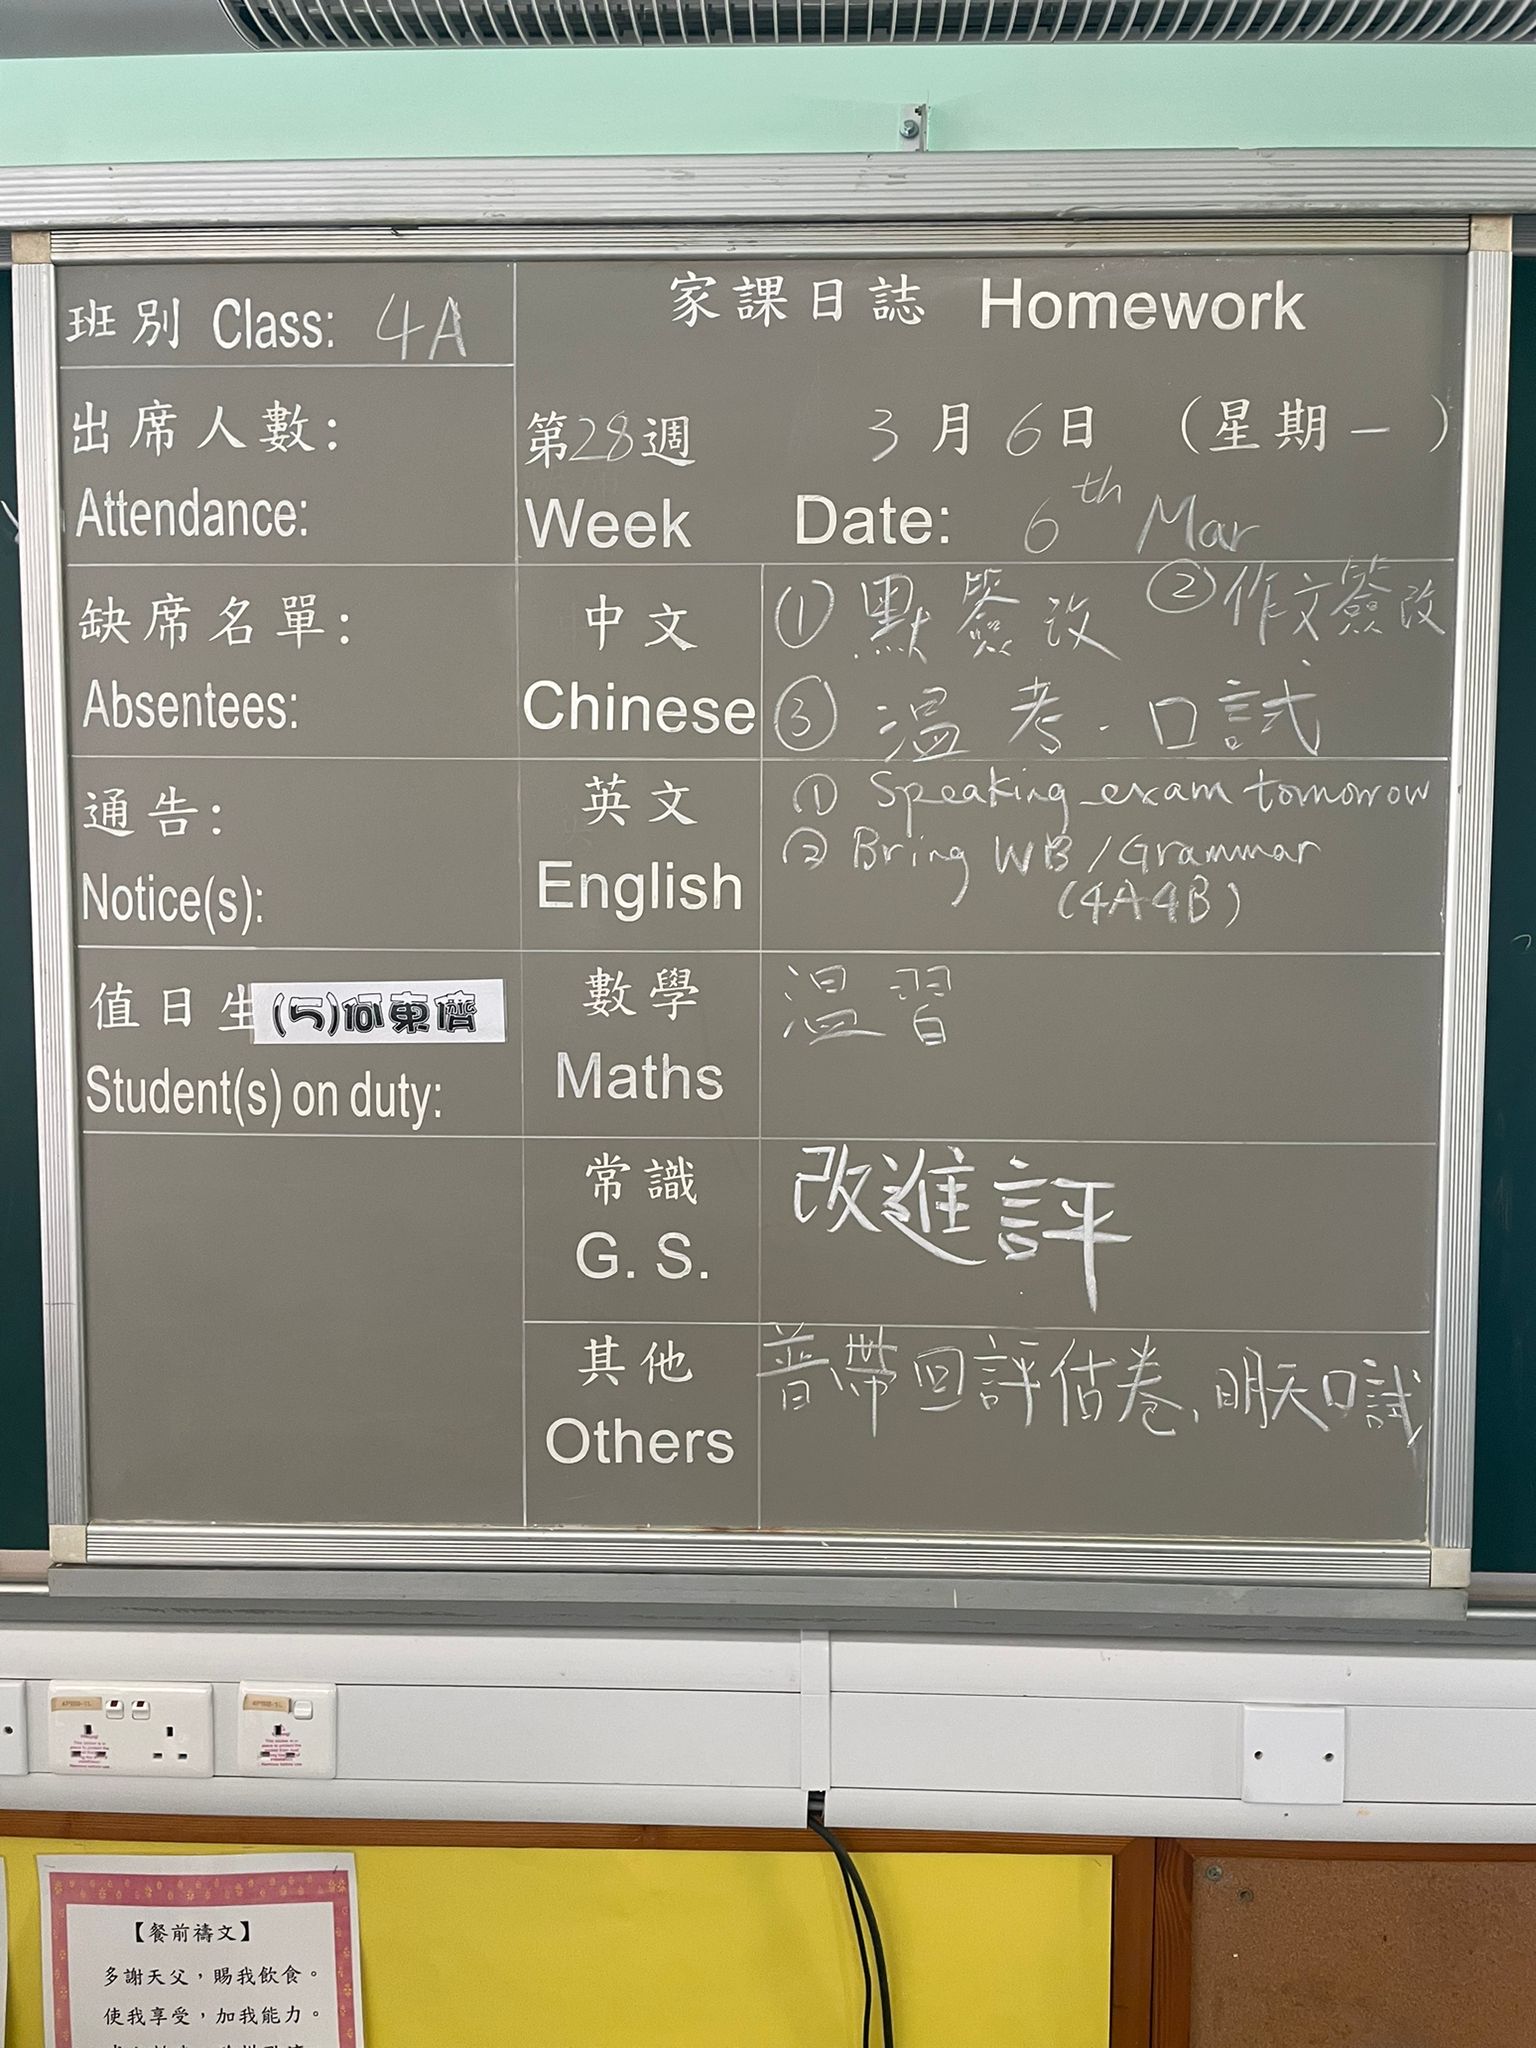 班別 Class: 4A
家課日誌 Homework
出席人數:
Attendance:
第28週 3月6日 (星期一)
Week Date: 6th Mar
缺席名單:
Absentees:
中文
Chinese
①默簽改 ②作文簽改
③溫考.口試
通告:
Notice(s):
英文
English
① Speaking exam tomorrow
② Bring WB/Grammar
(4A4B)
值日生 (5)何東儕
Student(s) on duty:
數學
Maths
溫習
常識
G. S.
改進評
其他
Others
普帶回評估卷、明天口試
【餐前禱文】
多謝天父，賜我飲食。
使我享受，加我能力。